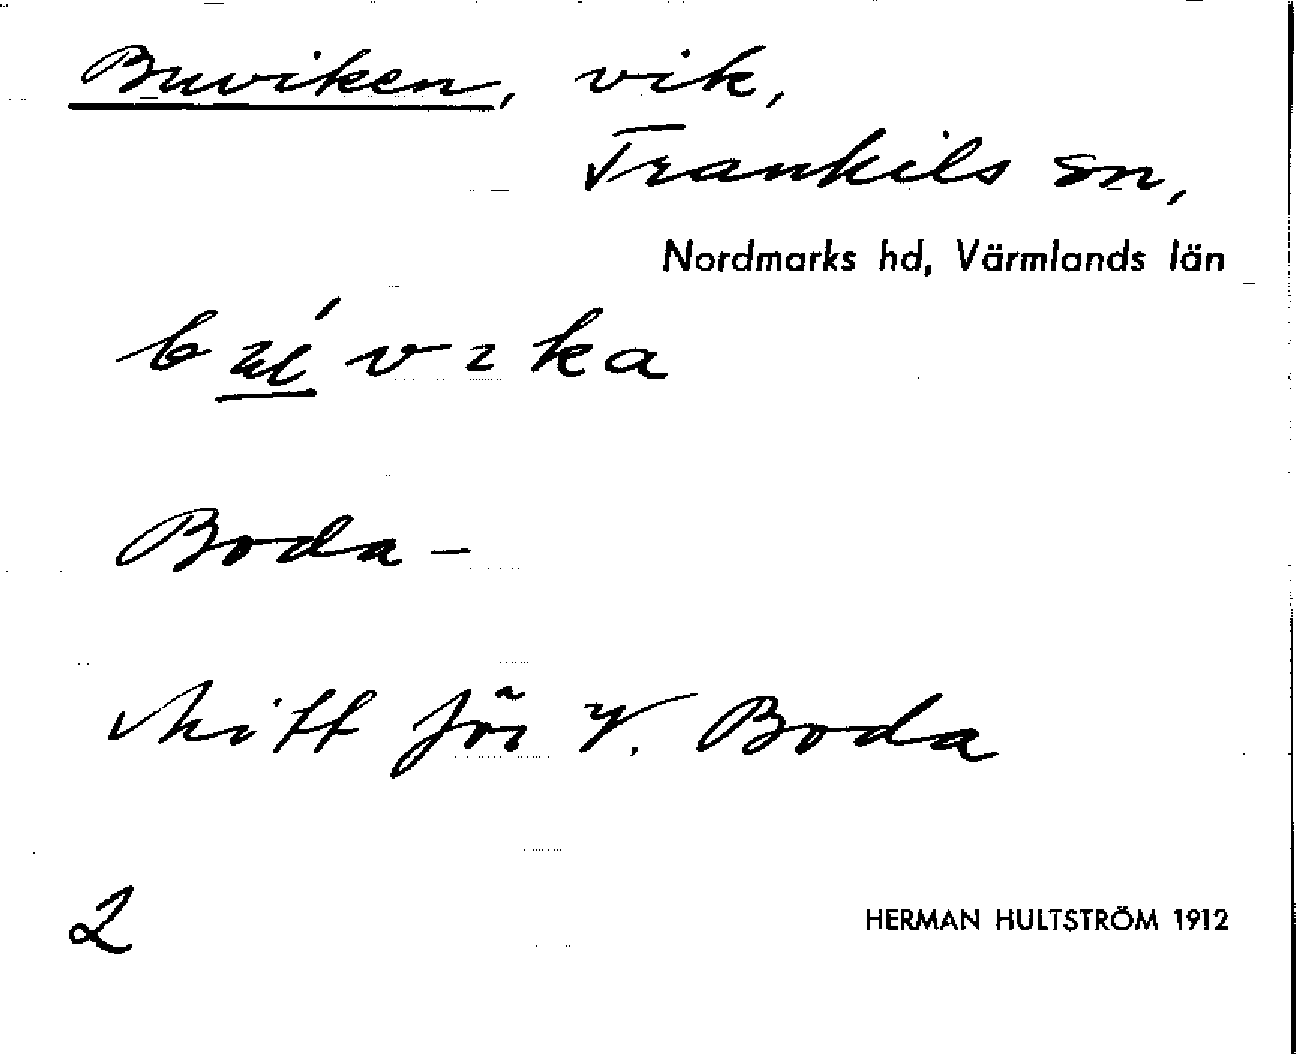 Buviken, vik,
Trankils sn,
Nordmarks hd, Värmlands län
Boda -
skiff för V. Boda
2
HERMAN HULTSTRÖM 1912